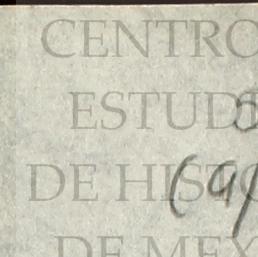 CENTRO
ESTUDI
DE HISTO
DE MEX